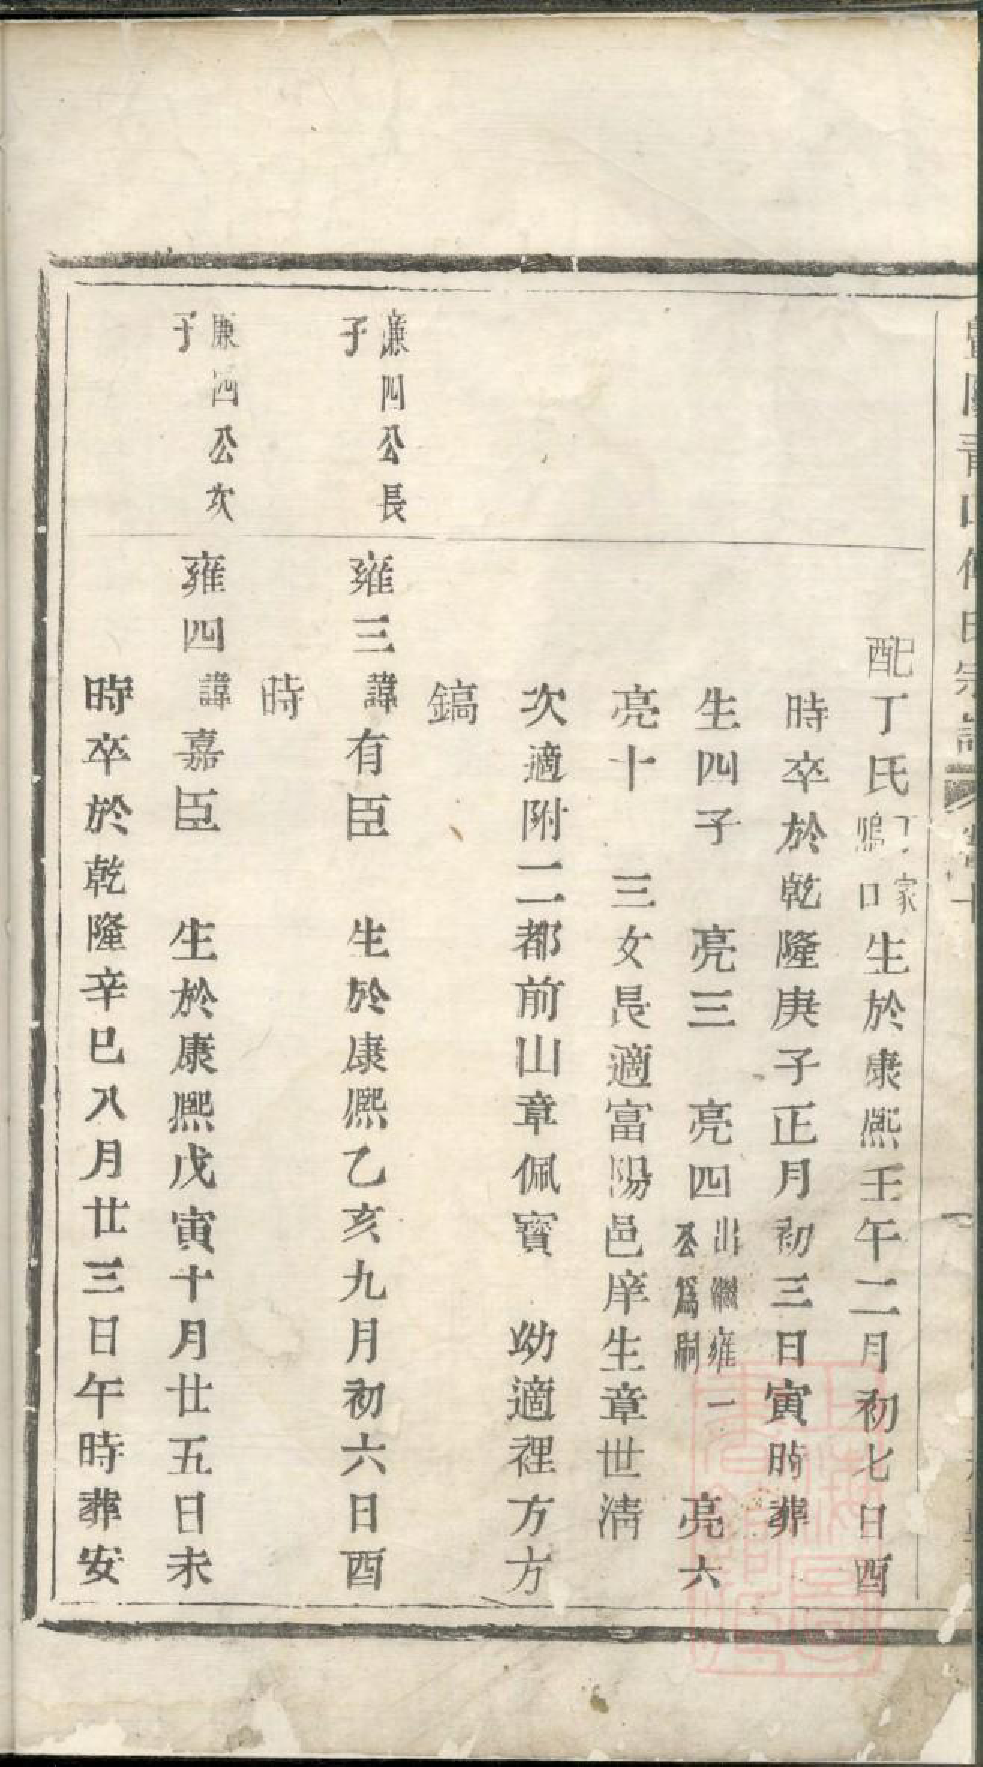 配丁氏丁家鴫口生於康熙壬午二月初七日酉
時卒於乾隆庚子正月初三日寅時葬
生四子 亮三 亮四出繼雍一公為嗣 亮六
亮十 三女長適富陽邑庠生章世淸
次適附二都前山章佩寳 幼適裡方方
鎬
廉四公長子
雍三諱有臣 生於康熙乙亥九月初六日酉
時
廉四公次子
雍四諱嘉臣 生於康熙戊寅十月廿五日未
時卒於乾隆辛巳八月廿三日午時葬安